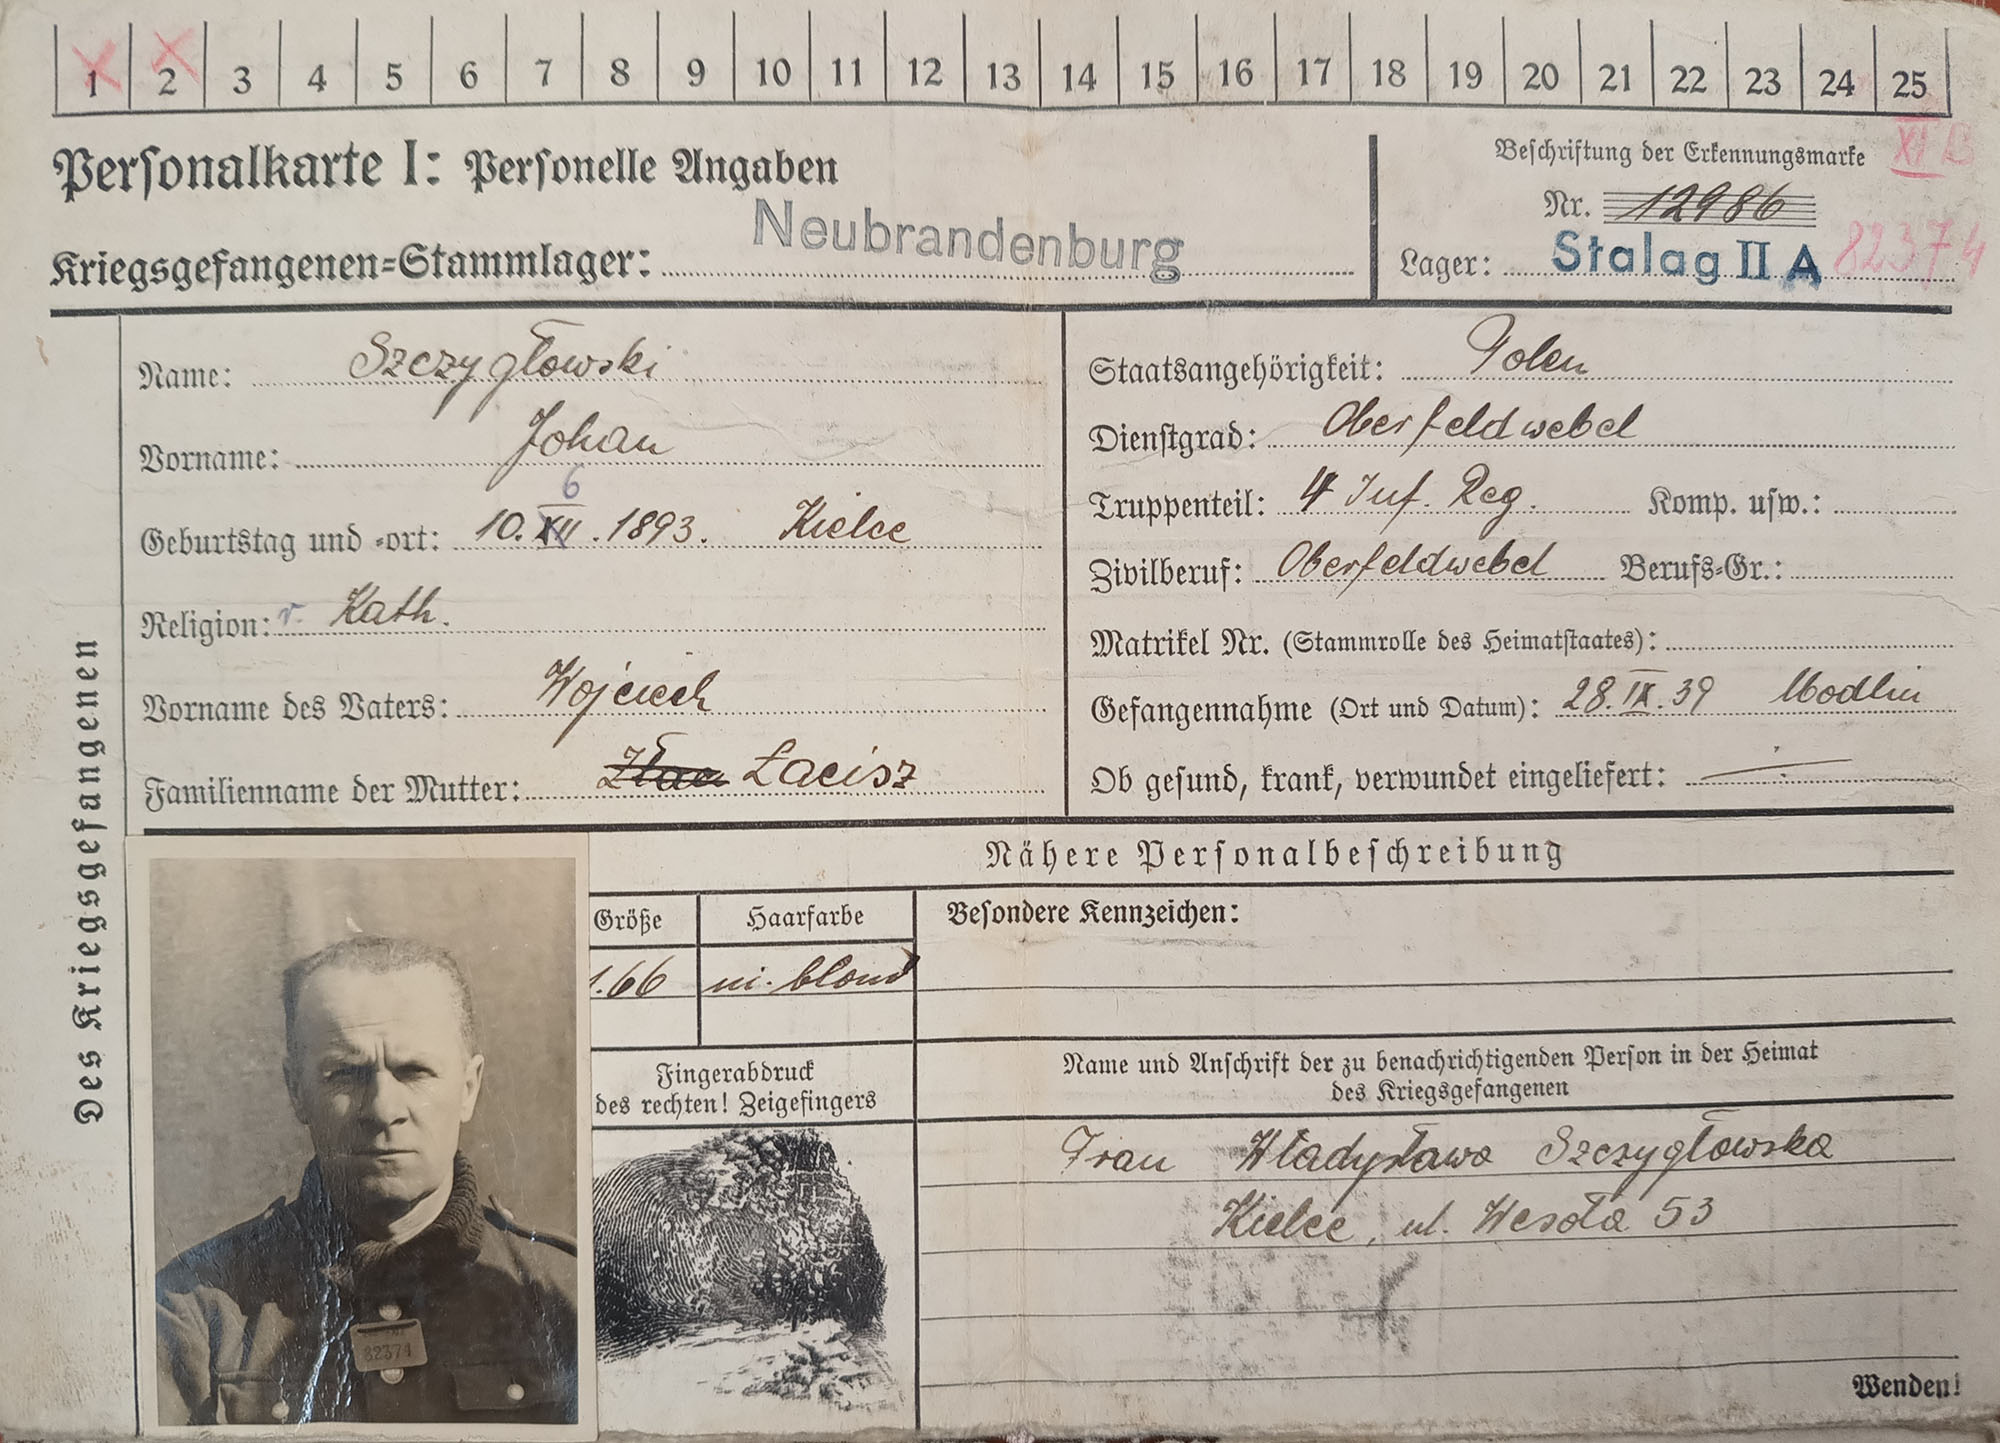 1 2 3 4 5 6 7 8 9 10 11 12 13 14 15 16 17 18 19 20 21 22 23 24 25
Personalkarte I: Personelle Angaben
Beschriftung der Erkennungsmarke XI B
Nr. 12986
Kriegsgefangenen=Stammlager: Neubrandenburg
Lager: Stalag II A 82374
Des Kriegsgefangenen
Name: Szczygłowski
Vorname: Johan
6
Geburtstag und =ort: 10. XII. 1893. Kielce
Religion: r. Kath.
Vorname des Vaters: Wojciech
Familienname der Mutter: Łacisz
Staatsangehörigkeit: Polen
Dienstgrad: Oberfeldwebel
Truppenteil: 4 Inf. Reg. Komp. usw.:
Zivilberuf: Oberfeldwebel Berufs=Gr.:
Matrikel Nr. (Stammrolle des Heimatstaates):
Gefangennahme (Ort und Datum): 28. IX. 39 Modlin
Ob gesund, krank, verwundet eingeliefert:
Nähere Personalbeschreibung
Größe Haarfarbe Besondere Kennzeichen:
1.66 m. blond
Fingerabdruck
des rechten! Zeigefingers
Name und Anschrift der zu benachrichtigenden Person in der Heimat
des Kriegsgefangenen
Frau Władysława Szczygłowska
Kielce, ul. Wesoła 53
82374
Wenden!